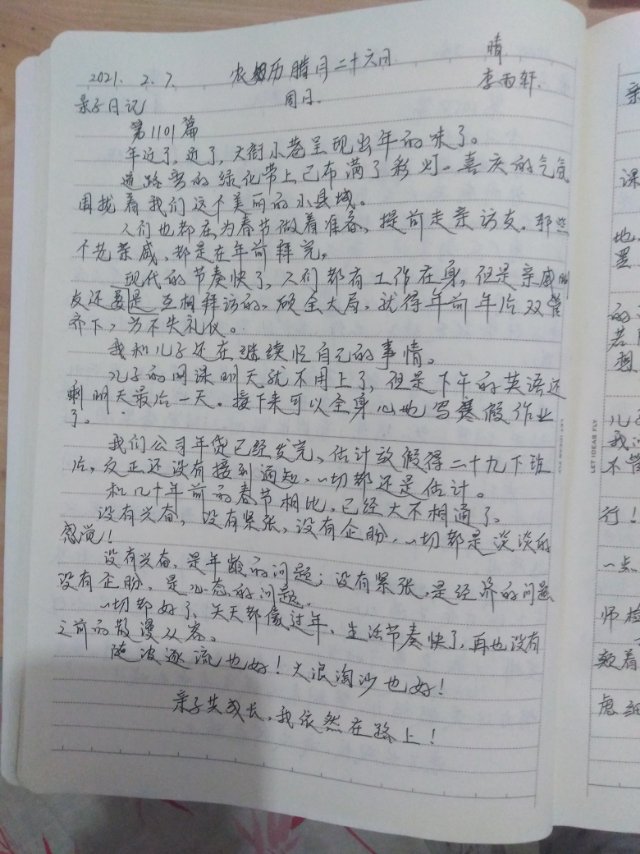 2021. 2. 7. 农历腊月二十六日 晴
亲子日记 周日. 李雨轩.
第1101篇
年近了,近了,大街小巷呈现出年的味了。
道路旁的绿化带上已布满了彩灯。喜庆的气氛
围拢着我们这个美丽的小县城。
人们也都在为春节做着准备,提前走亲访友。那些
个老亲戚,都是在年前拜完,
现代的节奏快了,人们都有工作在身,但是亲戚朋
友还要是互相拜访的,顾全大局,就得年前年后双管
齐下,方不失礼仪。
我和儿子还在继续忙自己的事情。
儿子的网课明天就不用上了,但是下午的英语还
剩明天最后一天。接下来可以全身心地写寒假作业
了。
我们公司年货已经发完,估计放假得二十九下班
后,反正还没有接到通知,一切都还是估计。
和几十年前的春节相比,已经大不相通了。
没有兴奋,没有紧张,没有企盼,一切都是淡淡的
感觉!
没有兴奋,是年龄的问题;没有紧张,是经济的问题
没有企盼,是心态的问题。
一切都好了,天天都像过年,生活节奏快了,再也没有
之前的散漫从容。
随波逐流也好!大浪淘沙也好!
亲子共成长,我依然在路上!
LET IDEAR FLY
亲
课
地.
置
的
若
想
儿
我
不管
行!
一点
师检
数着
虑